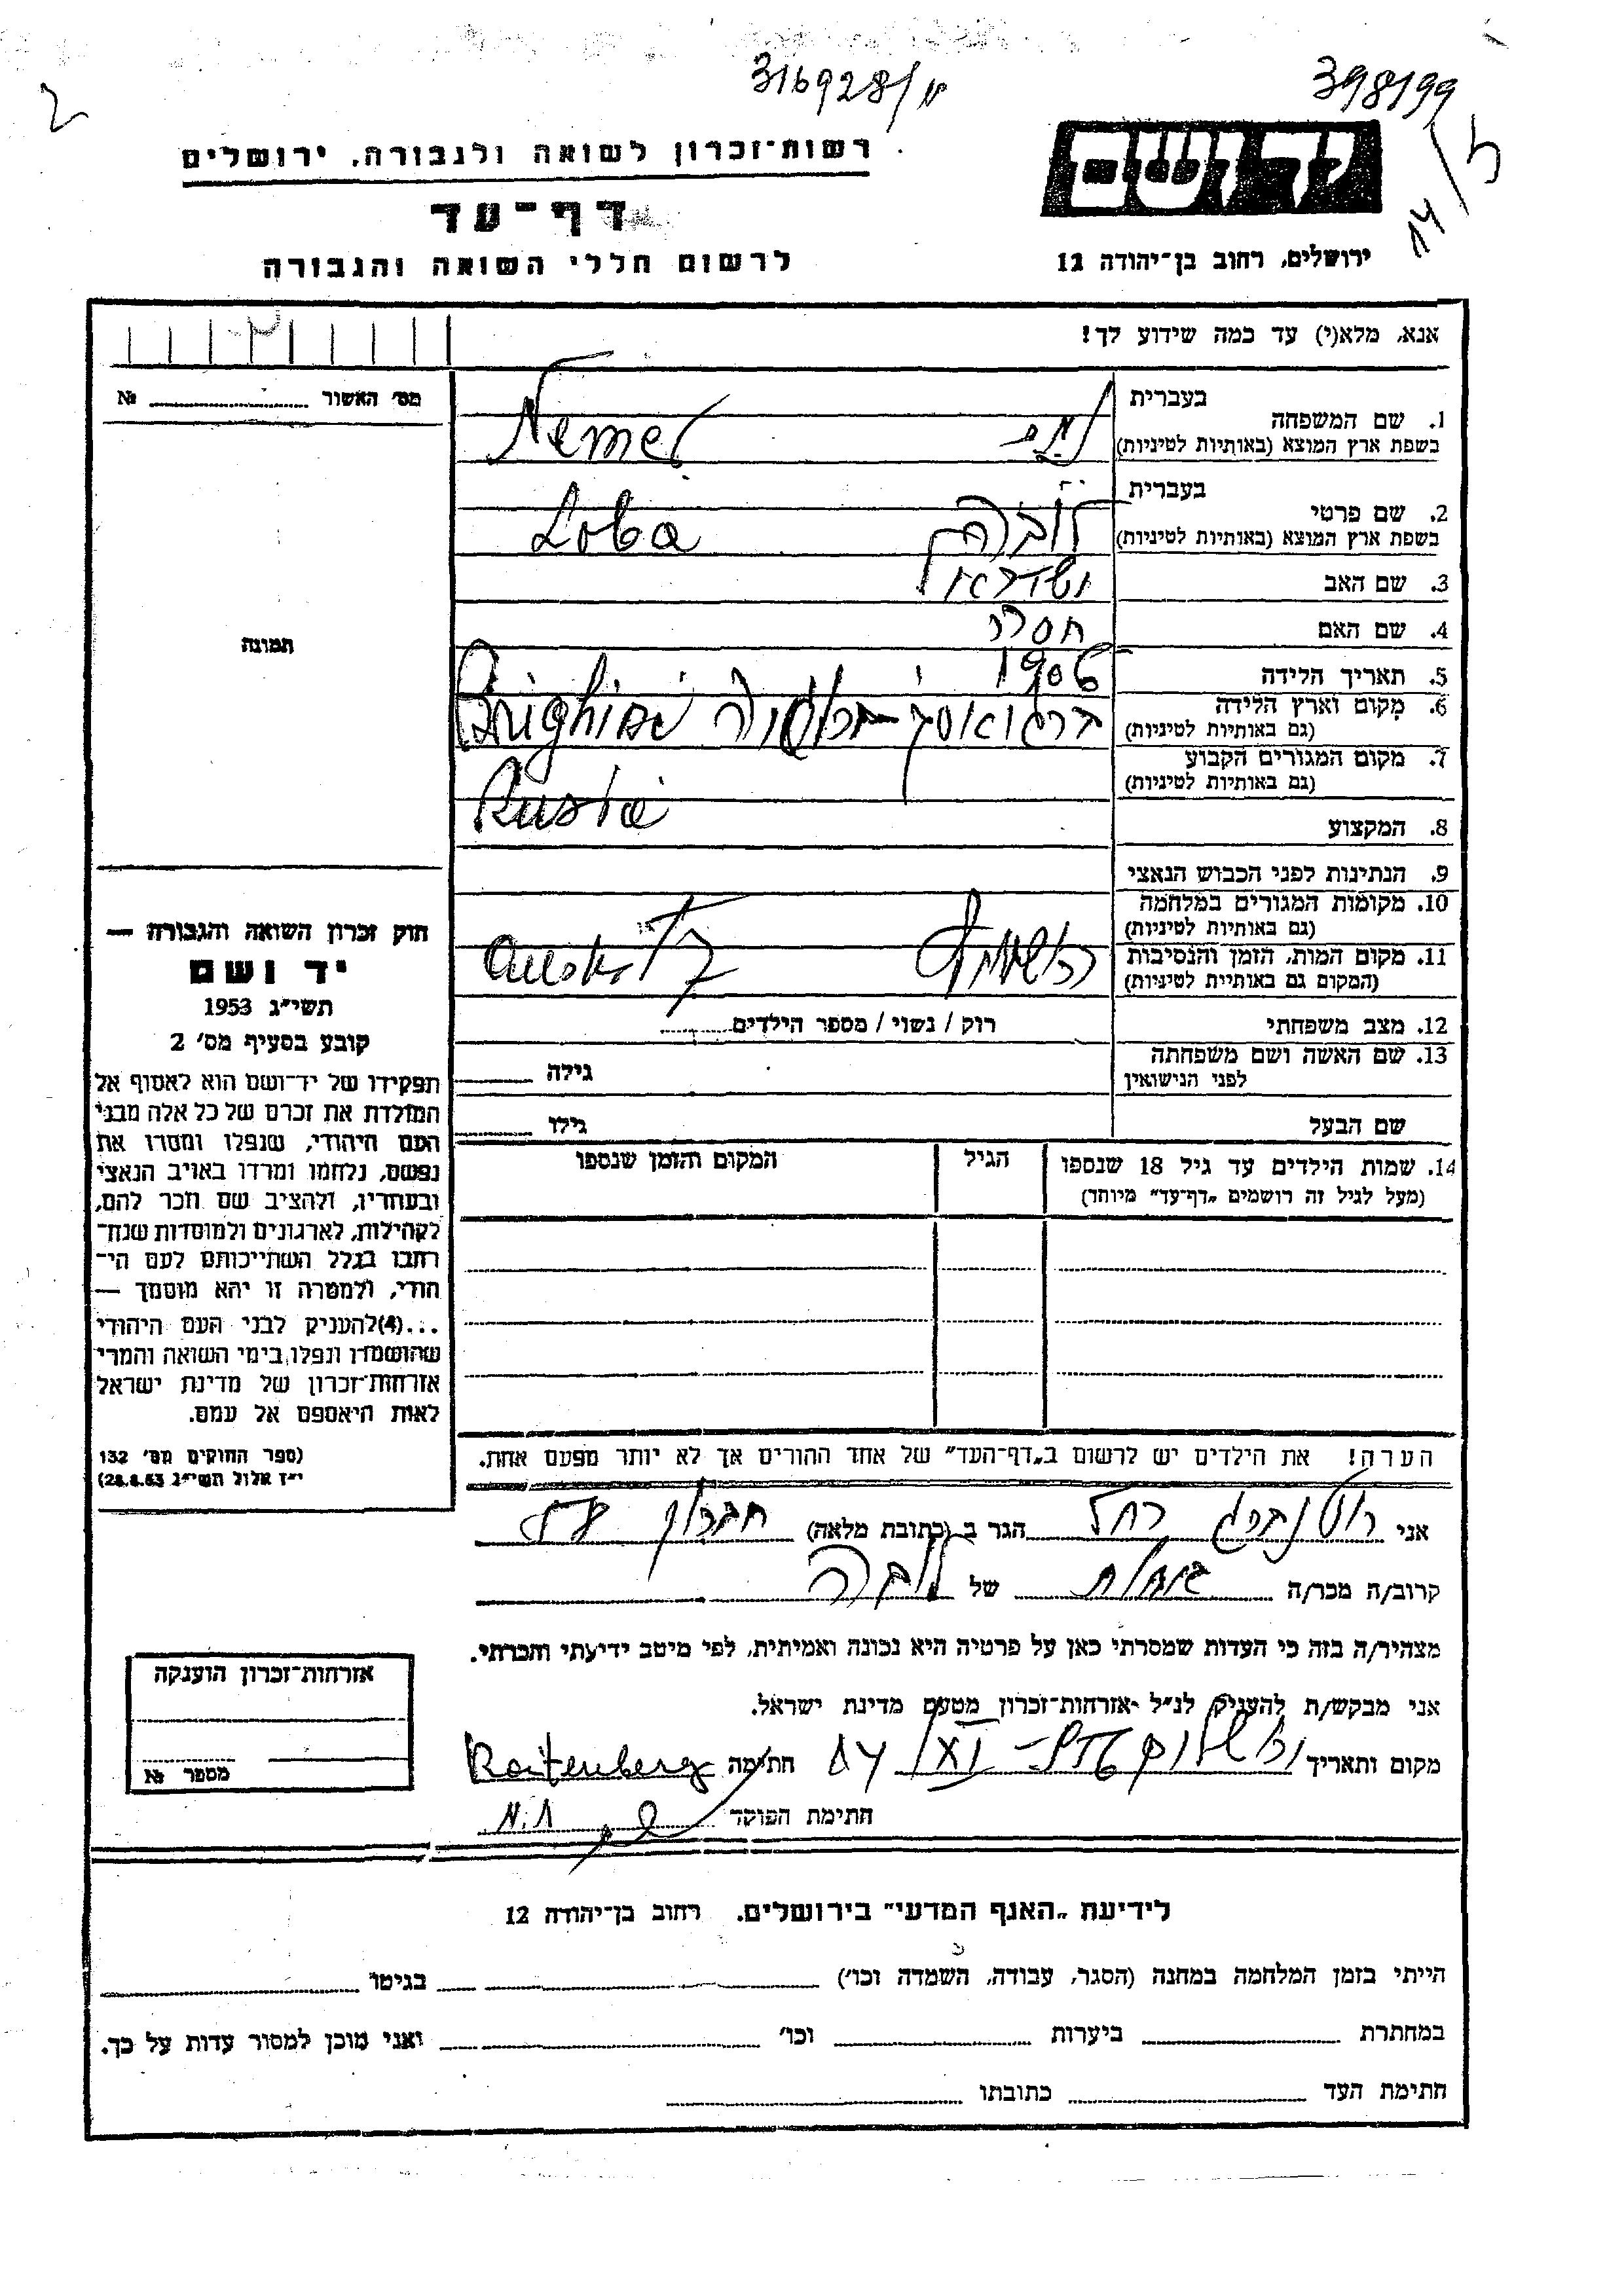 316928/
398199
14/5
רשות־זכרון לשואה ולגבורה, ירושלים
דף־עד
לרשום חללי השואה והגבורה
יד ושם
ירושלים, רחוב בן־יהודה 12
אנא, מלא(י) עד כמה שידוע לך!
מס׳ האשור № 
תמונה
בעברית
1. שם המשפחה
בשפת ארץ המוצא (באותיות לטיניות)
Nemet
בעברית
2. שם פרטי
בשפת ארץ המוצא (באותיות לטיניות)
לובה Loba
3. שם האב ישראל
4. שם האם
5. תאריך הלידה 1906
6. מקום וארץ הלידה
(גם באותיות לטיניות)
7. מקום המגורים הקבוע
(גם באותיות לטיניות)
Rusia
8. המקצוע
9. הנתינות לפני הכבוש הנאצי
10. מקומות המגורים במלחמה
(גם באותיות לטיניות)
11. מקום המות, הזמן והנסיבות
(המקום גם באותיות לטיניות)
12. מצב משפחתי רוק / נשוי / מספר הילדים
13. שם האשה ושם משפחתה
לפני הנישואין
גילה
שם הבעל גילו
14. שמות הילדים עד גיל 18 שנספו
(מעל לגיל זה רושמים „דף־עד״ מיוחד)
הגיל
המקום והזמן שנספו
חוק זכרון השואה והגבורה —
יד ושם
תשי״ג 1953
קובע בסעיף מס׳ 2
תפקידו של יד־ושם הוא לאסוף אל
המולדת את זכרם של כל אלה מבני
העם היהודי, שנפלו ומסרו את
נפשם, נלחמו ומרדו באויב הנאצי
ובעוזריו, ולהציב שם וזכר להם,
לקהילות, לארגונים ולמוסדות שנח־
רבו בגלל השתייכותם לעם הי־
הודי, ולמטרה זו יהא מוסמך —
...(4)להעניק לבני העם היהודי
שהושמדו ונפלו בימי השואה והמרי
אזרחות־זכרון של מדינת ישראל
לאות היאספם אל עמם.
(ספר החוקים מס׳ 132
י״ז אלול תשי״ג 28.8.53)
הערה! את הילדים יש לרשום ב„דף־העד״ של אחד ההורים אך לא יותר מפעם אחת.
אני רוטנברג רחל הגר ב (כתובת מלאה)
קרוב/ה מכר/ה של לובה
מצהיר/ה בזה כי העדות שמסרתי כאן על פרטיה היא נכונה ואמיתית, לפי מיטב ידיעתי והכרתי.
אני מבקש/ת להעניק לנ״ל אזרחות־זכרון מטעם מדינת ישראל.
מקום ותאריך חתימה Roitenberg
חתימת הפוקד
אזרחות־זכרון הוענקה
מספר №
לידיעת „האגף המדעי״ בירושלים, רחוב בן־יהודה 12
הייתי בזמן המלחמה במחנה (הסגר, עבודה, השמדה וכו׳) בגיטו
במחתרת ביערות וכו׳ ואני מוכן למסור עדות על כך.
חתימת העד כתובתו